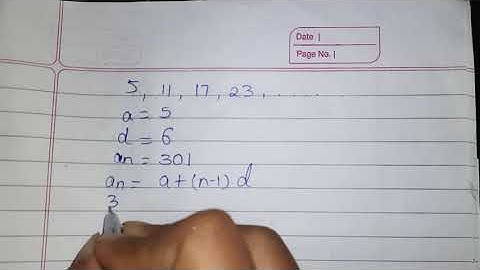 Date |
Page No. |
5, 11, 17, 23, .....
a = 5
d = 6
an = 301
an = a+(n-1).d
3